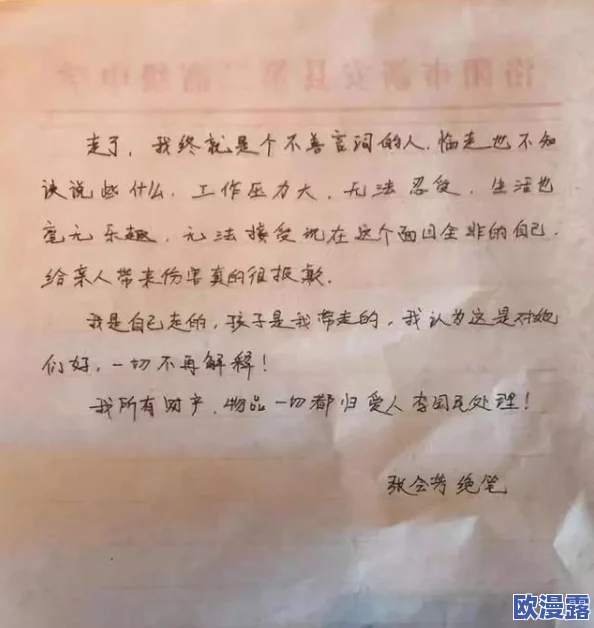 洛阳市新安县第二高级中学
走了，我终就是个不善言词的人，临走也不知
该说些什么，工作压力大，无法忍受，生活也
毫无乐趣，无法接受现在这个面目全非的自己，
给亲人带来伤害真的很报歉.
我是自己走的，孩子是我带走的，我认为这是对她
们好，一切不再解释！
我所有财产，物品一切都归爱人李国民处理！
张会芳 绝笔
欧漫露